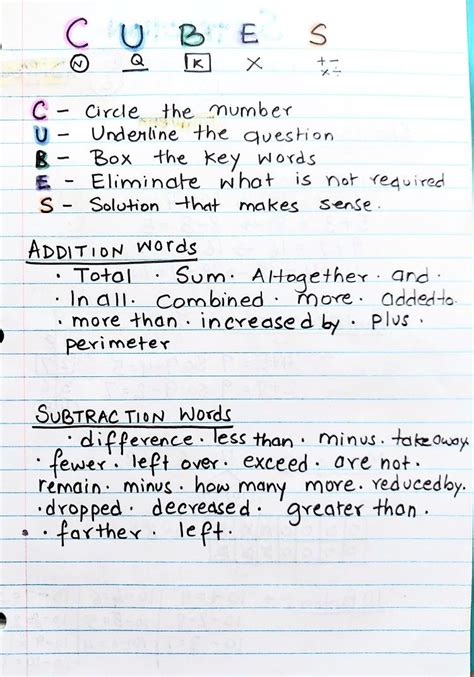 C U B E S
N Q K X + - x ÷
C - Circle the number
U - Underline the question
B - Box the key words
E - Eliminate what is not required
S - Solution that makes sense.
ADDITION Words
· Total · Sum · Altogether · and ·
· In all · Combined · more · added to ·
· more than · increased by · plus ·
perimeter
SUBTRACTION Words
· difference · less than · minus · take away
· fewer · left over · exceed · are not ·
remain · minus · how many more · reduced by ·
· dropped · decreased · greater than ·
· farther · left ·